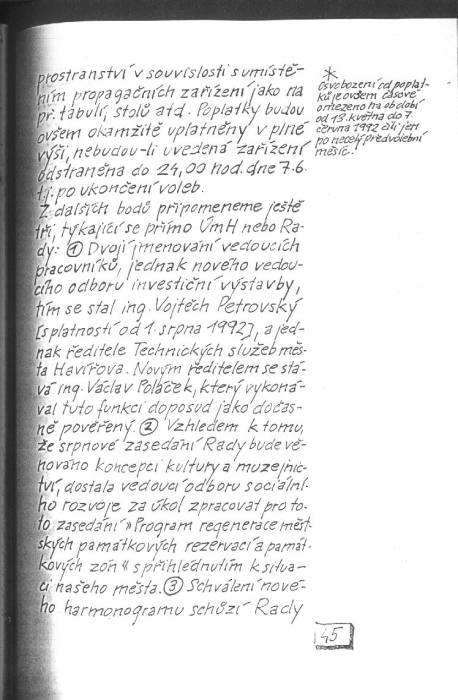 prostranství v souvislosti s umístě-
ním propagačních zařízení jako na
př. tabulí, stolů atd. Poplatky budou
ovšem okamžitě uplatněny v plné
výši, nebudou-li uvedená zařízení
odstraněna do 24,00 hod. dne 7.6.
tj. po ukončení voleb.
Z dalších bodů připomeneme ještě
tři, týkající se přímo ÚmH nebo Ra-
dy: ① Dvojí jmenování vedoucích
pracovníků, jednak nového vedou-
cího odboru investiční výstavby,
tím se stal ing. Vojtěch Petrovský
[s platností od 1. srpna 1992], a jed-
nak ředitele Technických služeb měs-
ta Havířova. Novým ředitelem se stá-
vá ing. Václav Poláček, který vykoná-
val tuto funkci doposud jako dočas-
ně pověřený. ② Vzhledem k tomu,
že srpnové zasedání Rady bude vě-
nováno koncepci kultury a muzejnic-
tví, dostala vedoucí odboru sociální-
ho rozvoje za úkol zpracovat pro to-
to zasedání »Program regenerace měst-
ských památkových rezervací a památ-
kových zón« s přihlédnutím k situa-
ci našeho města. ③ Schválení nové-
ho harmonogramu schůzí Rady
*
Osvobození od poplat-
ků je ovšem časově
omezeno na období
od 13. května do 7.
června 1992 čili jen
po necelý předvolební
měsíc!
45